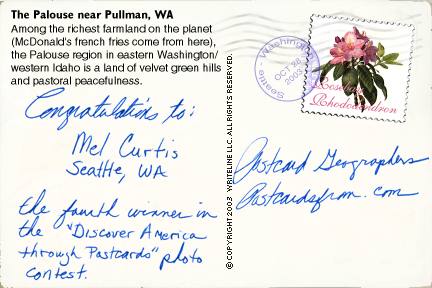 The Palouse near Pullman, WA
Among the richest farmland on the planet
(McDonald's french fries come from here),
the Palouse region in eastern Washington/
western Idaho is a land of velvet green hills
and pastoral peacefulness.
Congratulations to:
Mel Curtis
Seattle, WA
the fourth winner in
the "Discover America
through Postcards" photo
contest.
© COPYRIGHT 2003 WRITELINE LLC. ALL RIGHTS RESERVED.
Seattle - Washington
OCT 28
2003
Rhododendron
Postcard Geographers
Postcardsfrom.com